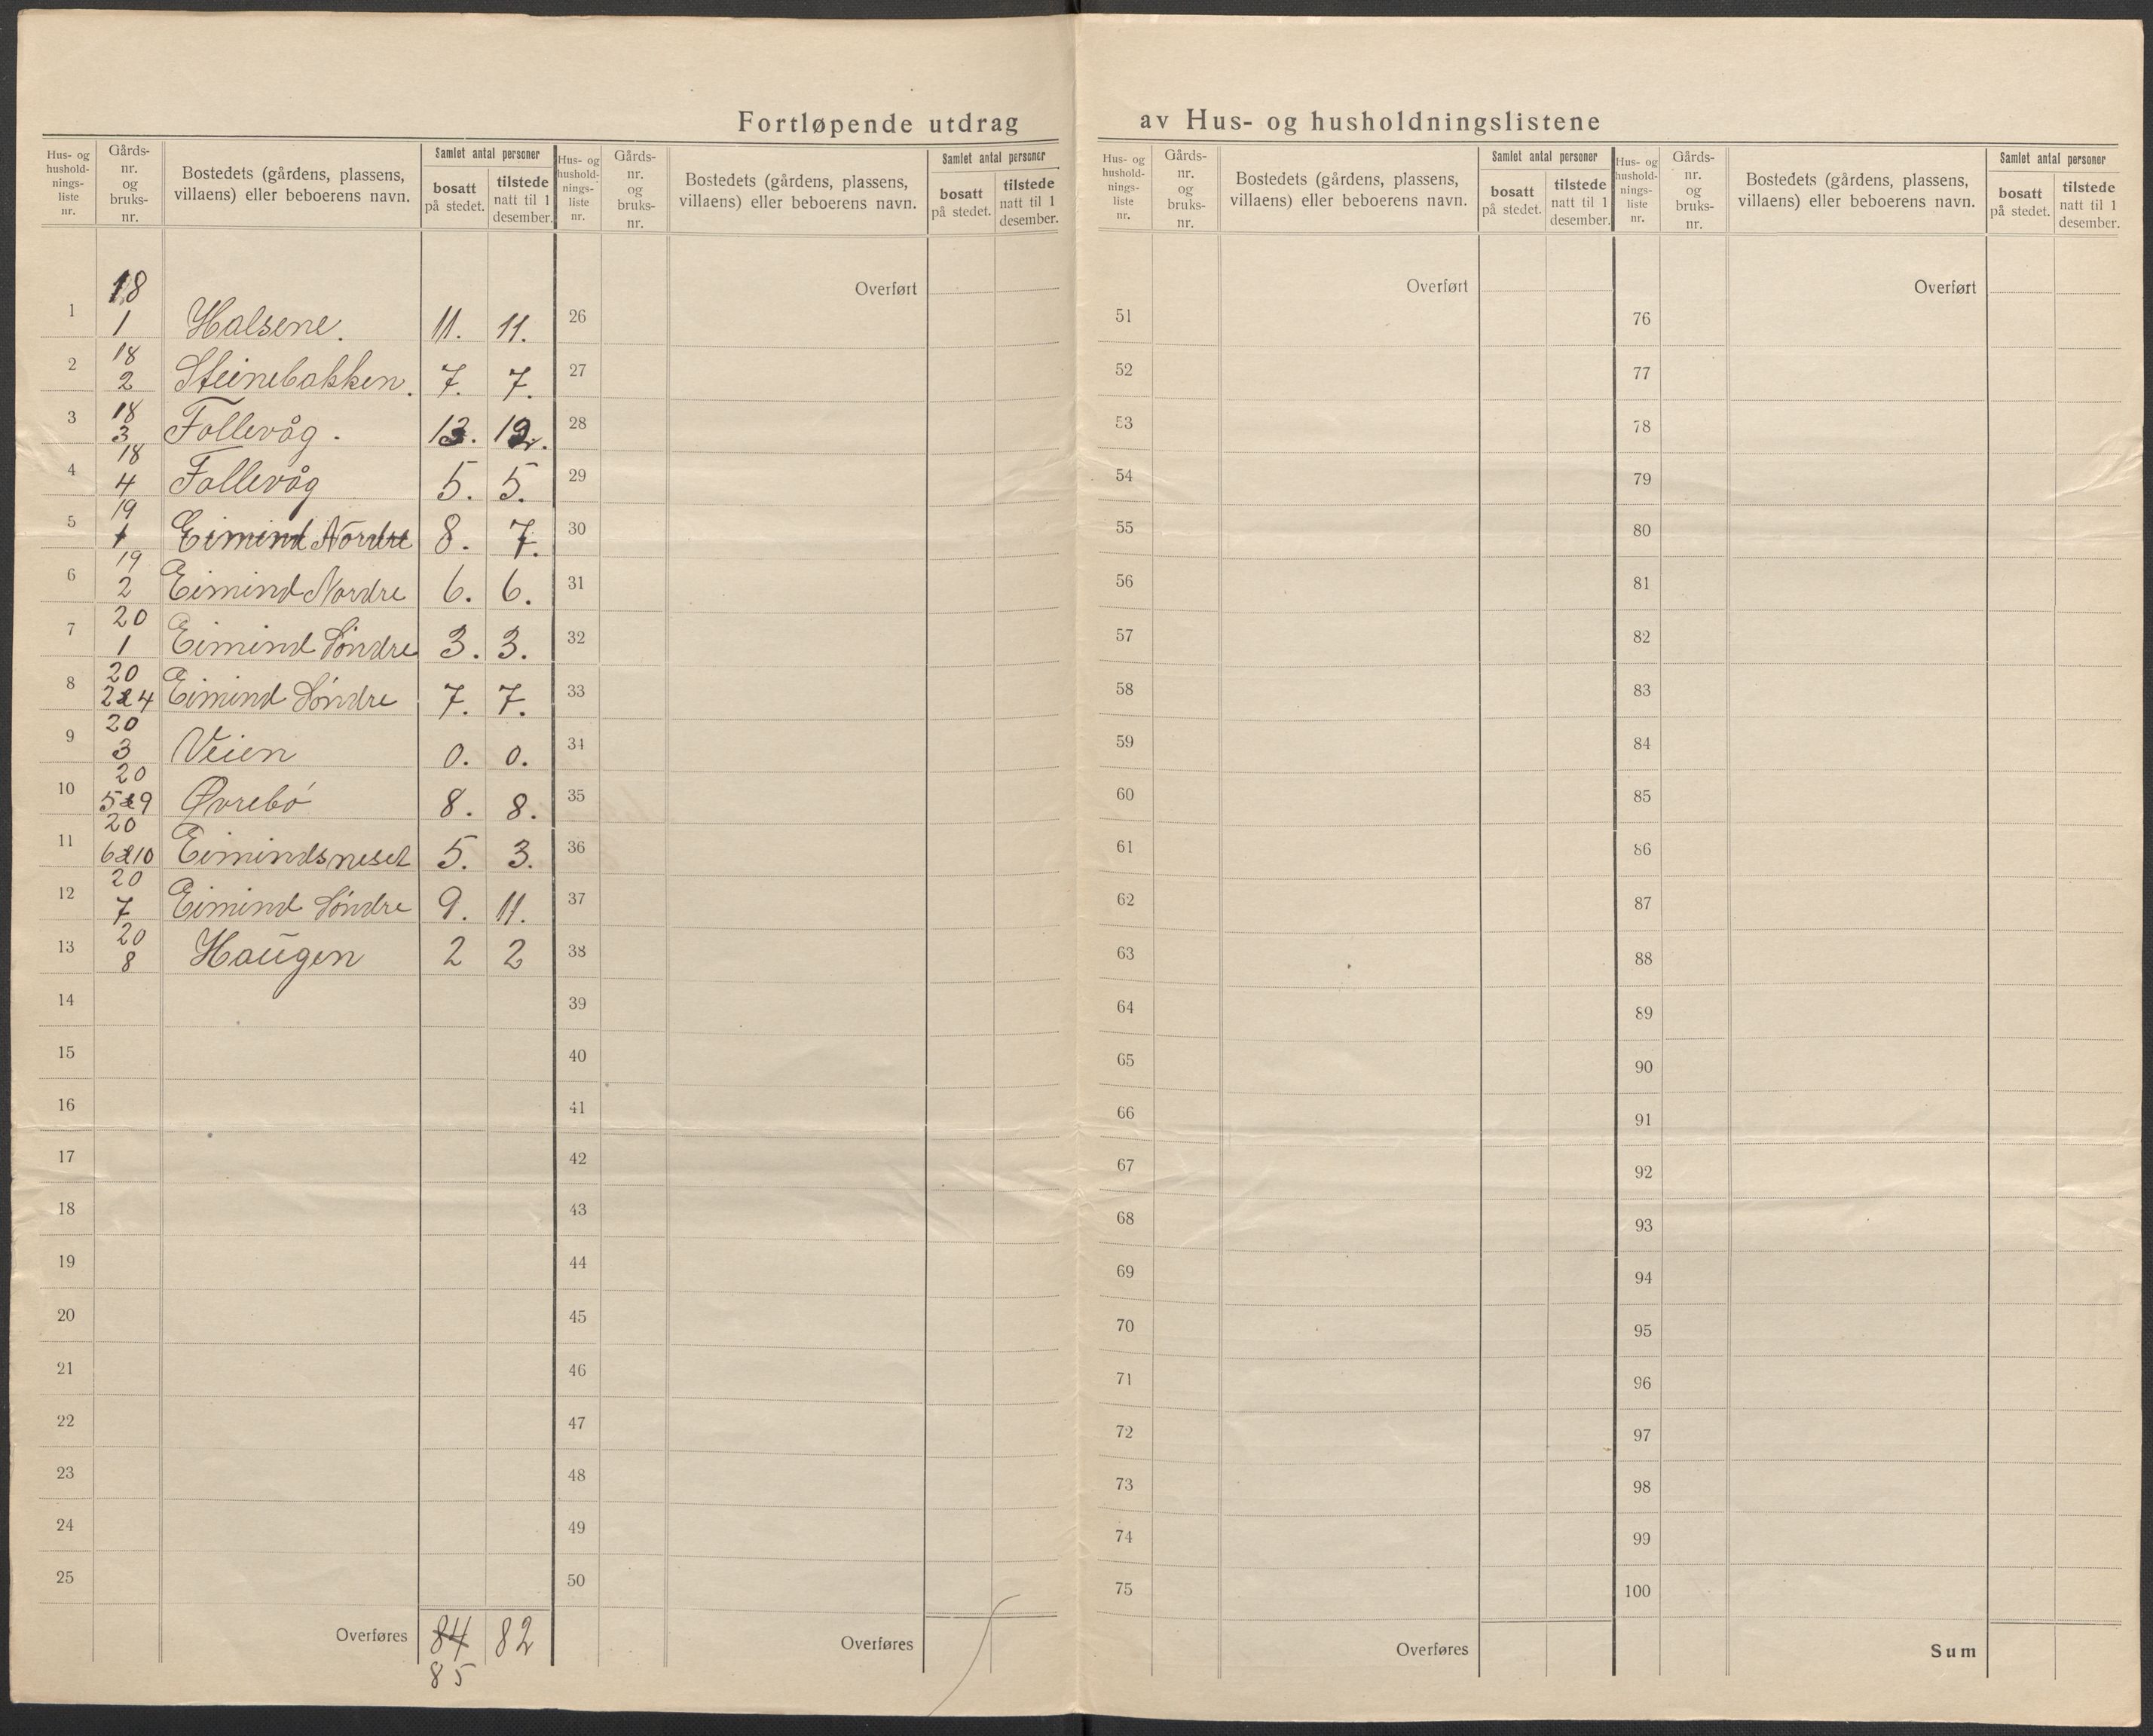 Fortløpende utdrag av Hus- og husholdningslistene
Hus- og hushold- nings- liste nr.
Gårds- nr. og bruks- nr.
Bostedets (gårdens, plassens, villaens) eller beboerens navn.
Samlet antal personer
bosatt på stedet.
tilstede natt til 1 desember.
Hus- og hushold- nings- liste nr.
Gårds- nr. og bruks- nr.
Bostedets (gårdens, plassens, villaens) eller beboerens navn.
Samlet antal personer
bosatt på stedet.
tilstede natt til 1 desember.
Hus- og hushold- nings- liste nr.
Gårds- nr. og bruks- nr.
Bostedets (gårdens, plassens, villaens) eller beboerens navn.
Samlet antal personer
bosatt på stedet.
tilstede natt til 1 desember.
Hus- og hushold- nings- liste nr.
Gårds- nr. og bruks- nr.
Bostedets (gårdens, plassens, villaens) eller beboerens navn.
Samlet antal personer
bosatt på stedet.
tilstede natt til 1 desember.
1 18 1 Halsene. 11. 11.
2 18 2 Steinebakken. 7. 7.
3 18 3 Follevåg. 13. 12.
4 18 4 Follevåg 5. 5.
5 19 1 Eimind Nordre 8. 7.
6 19 2 Eimind Nordre 6. 6.
7 20 1 Eimind Söndre 3. 3.
8 20 2&4 Eimind Söndre 7. 7.
9 20 3 Veien 0. 0.
10 20 5&9 Øvrebö 8. 8.
11 20 6&10 Eimindsneset 5. 3.
12 20 7 Eimind Söndre 9. 11.
13 20 8 Haugen 2 2
14
15
16
17
18
19
20
21
22
23
24
25
Overføres 84 82
85
Overført
26
27
28
29
30
31
32
33
34
35
36
37
38
39
40
41
42
43
44
45
46
47
48
49
50
Overføres
Overført
51
52
53
54
55
56
57
58
59
60
61
62
63
64
65
66
67
68
69
70
71
72
73
74
75
Overføres
Overført
76
77
78
79
80
81
82
83
84
85
86
87
88
89
90
91
92
93
94
95
96
97
98
99
100
Sum